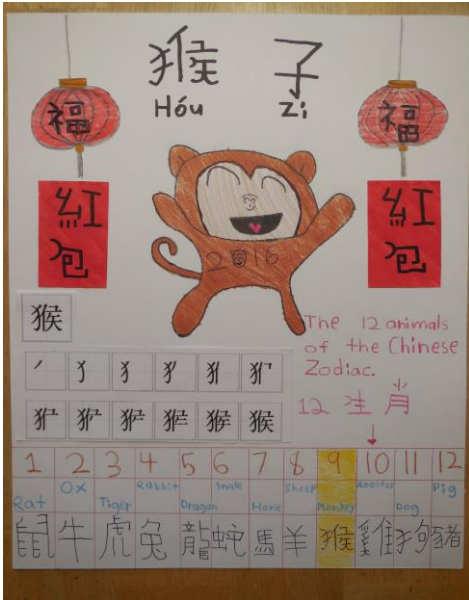 猴 子
Hóu Zi
福
福
紅包
紅包
2016
猴
The 12 animals
of the Chinese
Zodiac.
12 生肖
1 2 3 4 5 6 7 8 9 10 11 12
Rat Ox Tiger Rabbit Dragon Snake Horse Sheep Monkey Rooster Dog Pig
鼠 牛 虎 兔 龍 蛇 馬 羊 猴 雞 狗 豬